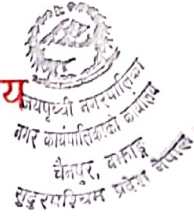 य
जयपृथ्वी नगरपालिका
नगर कार्यपालिकाको कार्यालय
चैनपुर, बझाङ्ग
सुदुरपश्चिम प्रदेश नेपाल